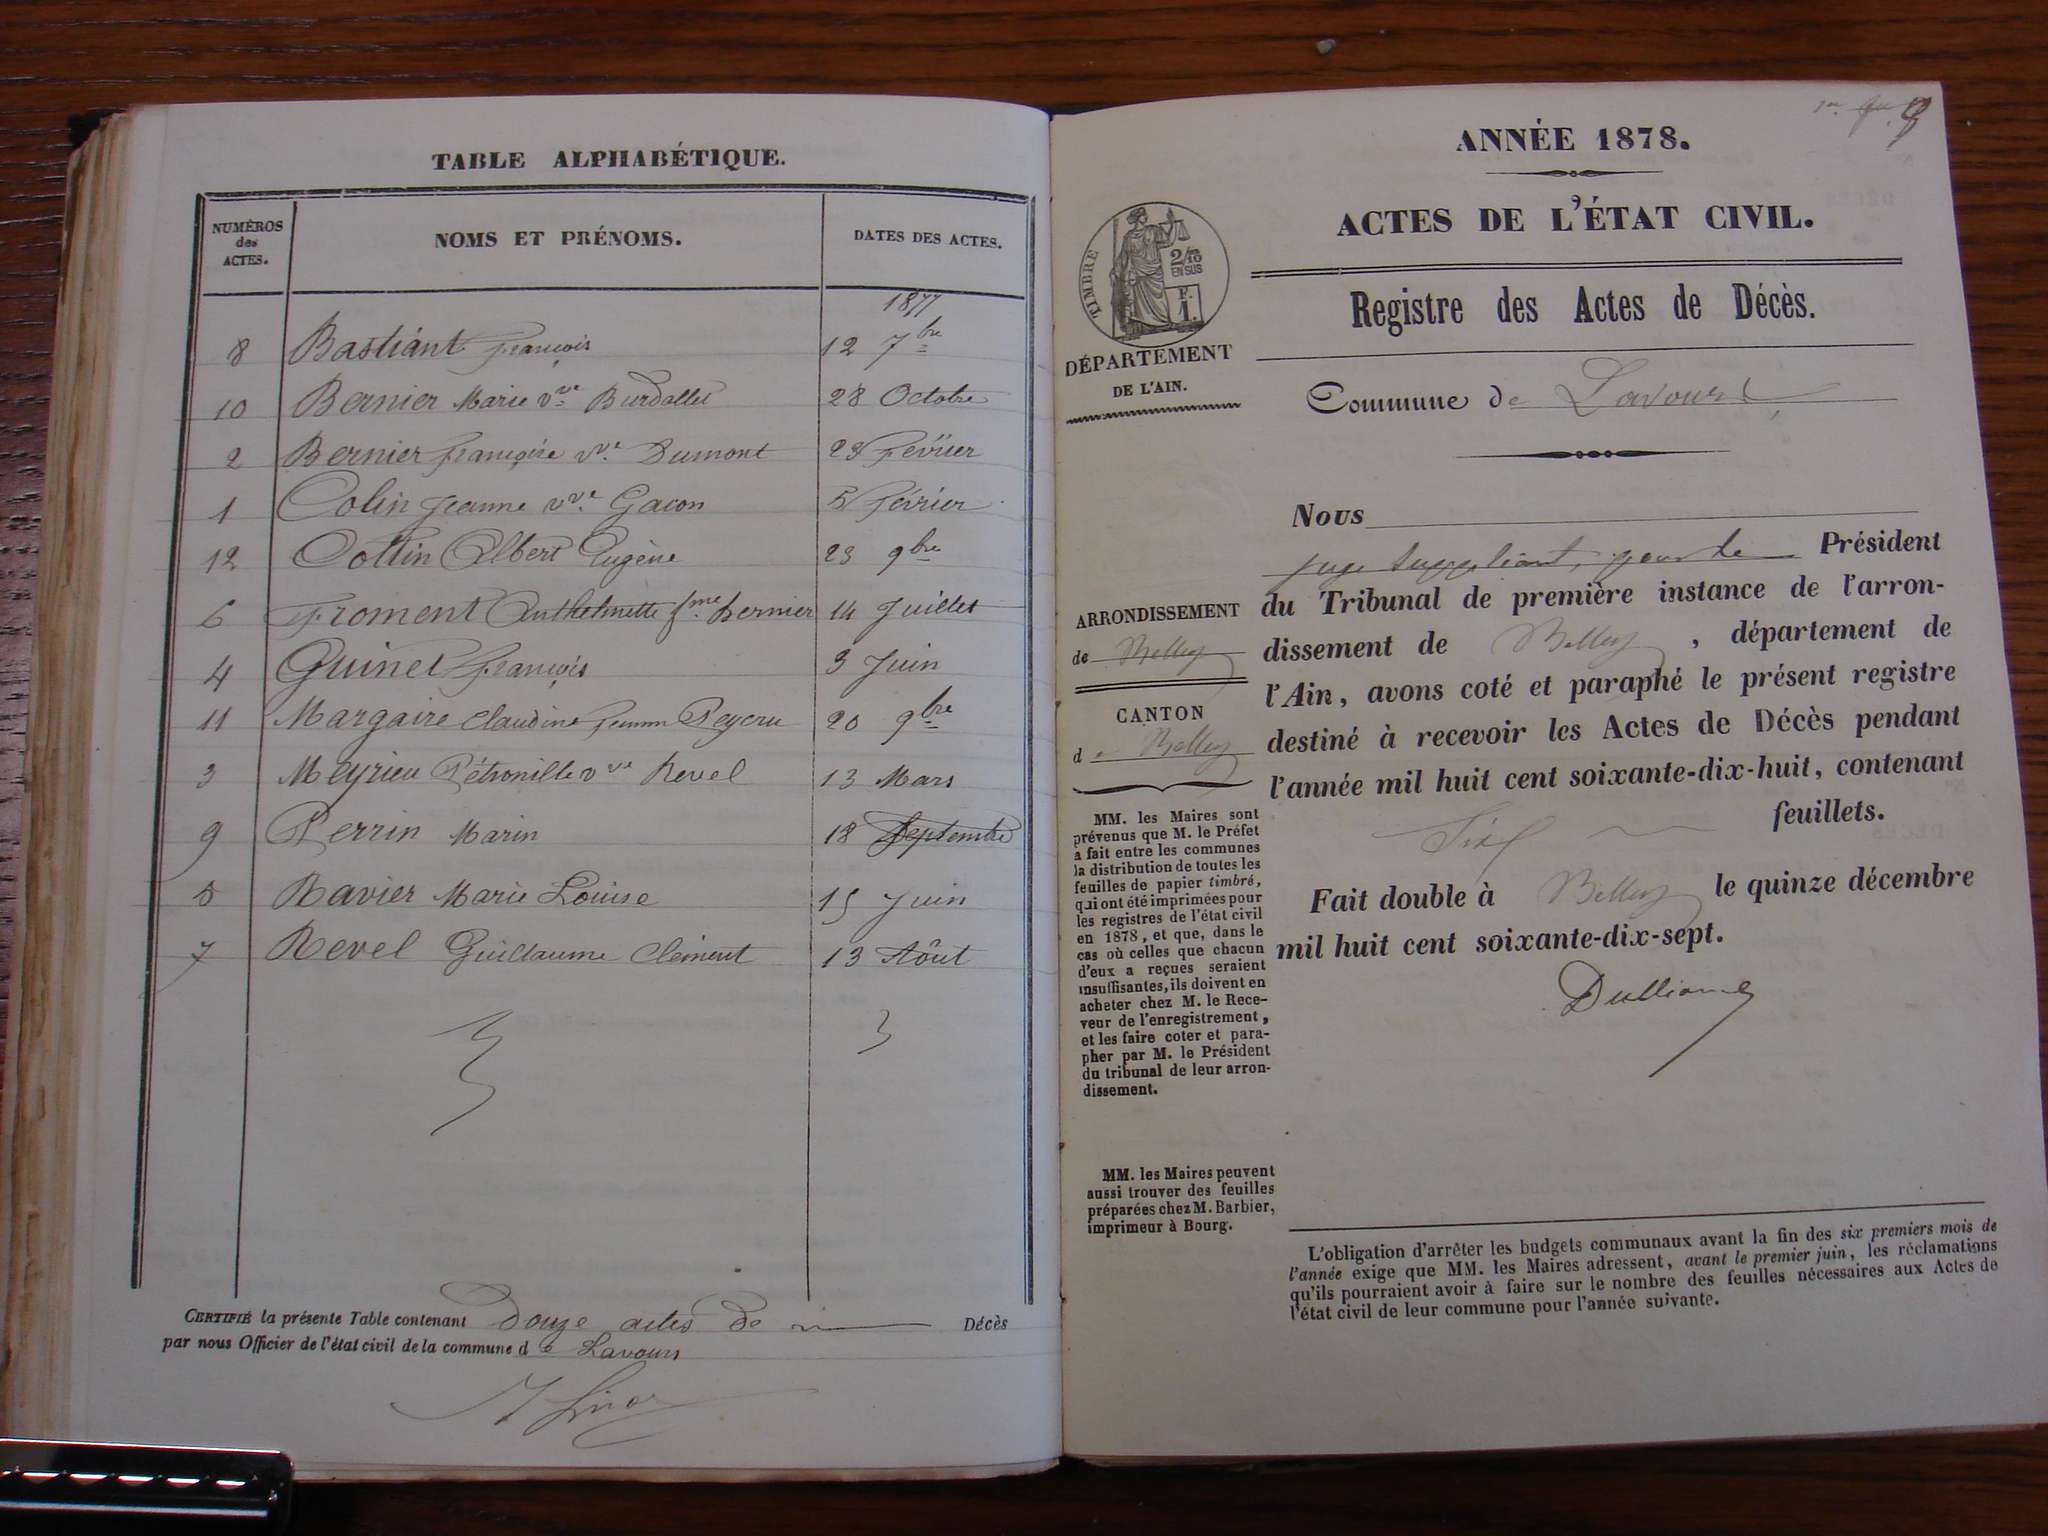 TABLE ALPHABÉTIQUE.
NUMÉROS des ACTES.
NOMS ET PRÉNOMS.
DATES DES ACTES.
1877
8 Bastiant françois 12 7bre
10 Bernier Marie vve Burdallet 28 Octobre
2 Bernier françoise vve Dumont 23 Février
1 Colin Jeanne vve Gacon 5 Février
12 Cottin Albert Eugène 23 9bre
6 Froment Anthelmette fme Bernier 14 Juillet
4 Guinet françois 3 Juin
11 Margaire Claudine femme Peycru 20 9bre
3 Meyrieu Pétronille vve Revel 13 Mars
9 Perrin Marin 18 Septembre
5 Ravier Marie Louise 15 Juin
7 Revel Guillaume Clément 13 Aôut
CERTIFIÉ la présente Table contenant Douze actes de Décès
par nous Officier de l'état civil de la commune de Lavours
ANNÉE 1878.
ACTES DE L'ÉTAT CIVIL.
TIMBRE
2/10
EN SUS
F.
1.
DÉPARTEMENT
DE L'AIN.
Registre des Actes de Décès.
Commune de Lavours
ARRONDISSEMENT
de Belley
CANTON
de Belley
MM. les Maires sont
prévenus que M. le Préfet
a fait entre les communes
la distribution de toutes les
feuilles de papier timbré,
qui ont été imprimées pour
les registres de l'état civil
en 1878, et que, dans le
cas où celles que chacun
d'eux a reçues seraient
insuffisantes, ils doivent en
acheter chez M. le Rece-
veur de l'enregistrement,
et les faire coter et para-
pher par M. le Président
du tribunal de leur arron-
dissement.
MM. les Maires peuvent
aussi trouver des feuilles
préparées chez M. Barbier,
imprimeur à Bourg.
Nous
juge suppléant, pour le Président
du Tribunal de première instance de l'arron-
dissement de Belley, département de
l'Ain, avons coté et paraphé le présent registre
destiné à recevoir les Actes de Décès pendant
l'année mil huit cent soixante-dix-huit, contenant
Six feuillets.
Fait double à Belley le quinze décembre
mil huit cent soixante-dix-sept.
L'obligation d'arrêter les budgets communaux avant la fin des six premiers mois de
l'année exige que MM. les Maires adressent, avant le premier juin, les réclamations
qu'ils pourraient avoir à faire sur le nombre des feuilles nécessaires aux Actes de
l'état civil de leur commune pour l'année suivante.